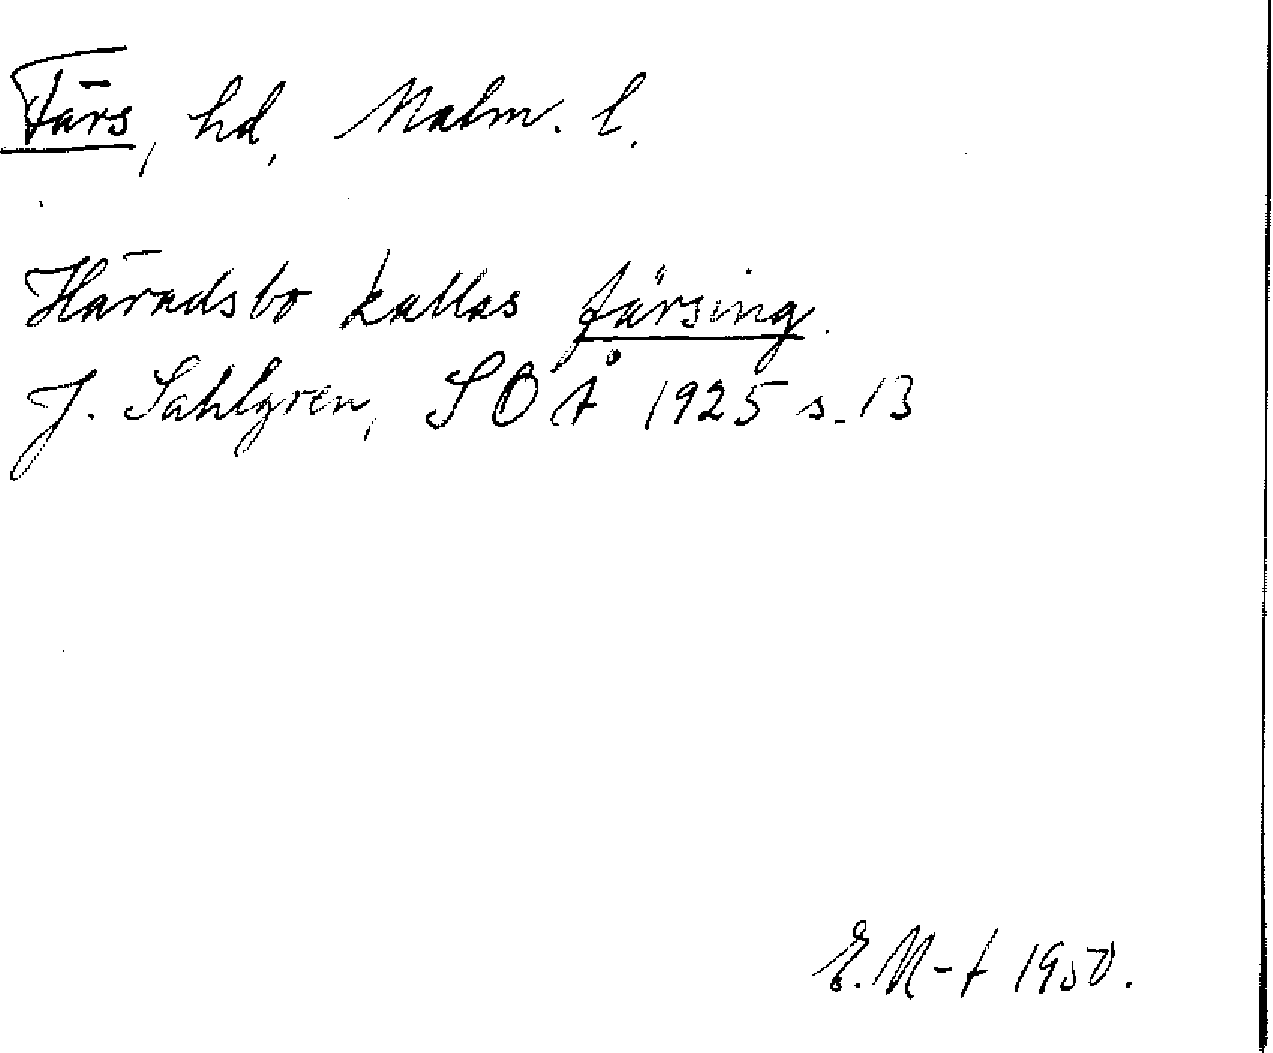 Färs, hd, Malm. l.
Häradsbo kallas färsing.
J. Sahlgren, SOÅ 1925 s. 13
E. M-t 1950.